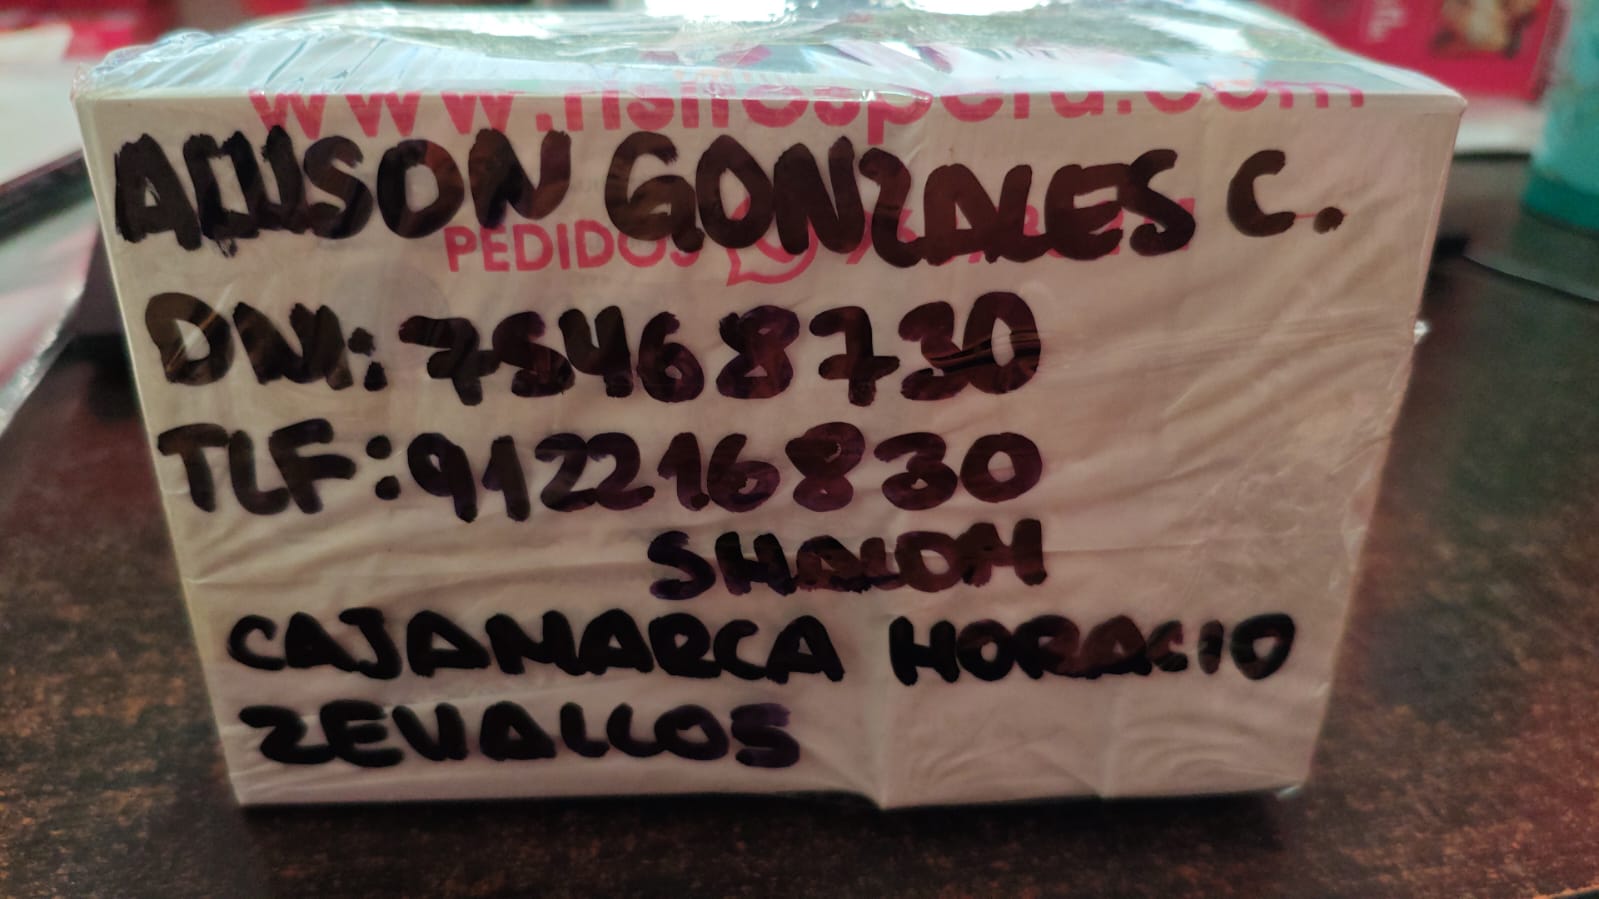 www.risitosperu.com
ALLISON GONZALES C.
PEDIDOS
DNI: 75468730
TLF: 912216830
SHALOM
CAJAMARCA HORACIO
ZEVALLOS